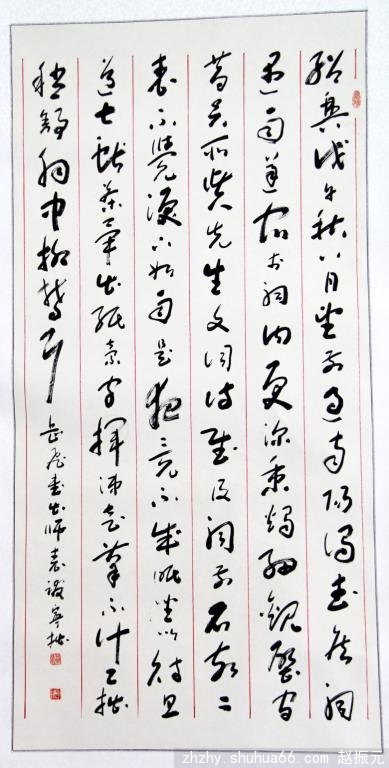 紹興戊午秋八月望前過南陽謁武侯祠
遇雨遂宿於祠内更深秉燭細觀壁間
昔賢所贊先生文詞詩賦及祠前石刻二
表不覺淚下如雨是夜竟不成眠坐以待旦
道士獻茶畢出紙索字揮涕走筆不計工拙
稍舒胸中抑鬱耳 岳飛書出師表跋
zhzhy.shuhua66.com 赵振元